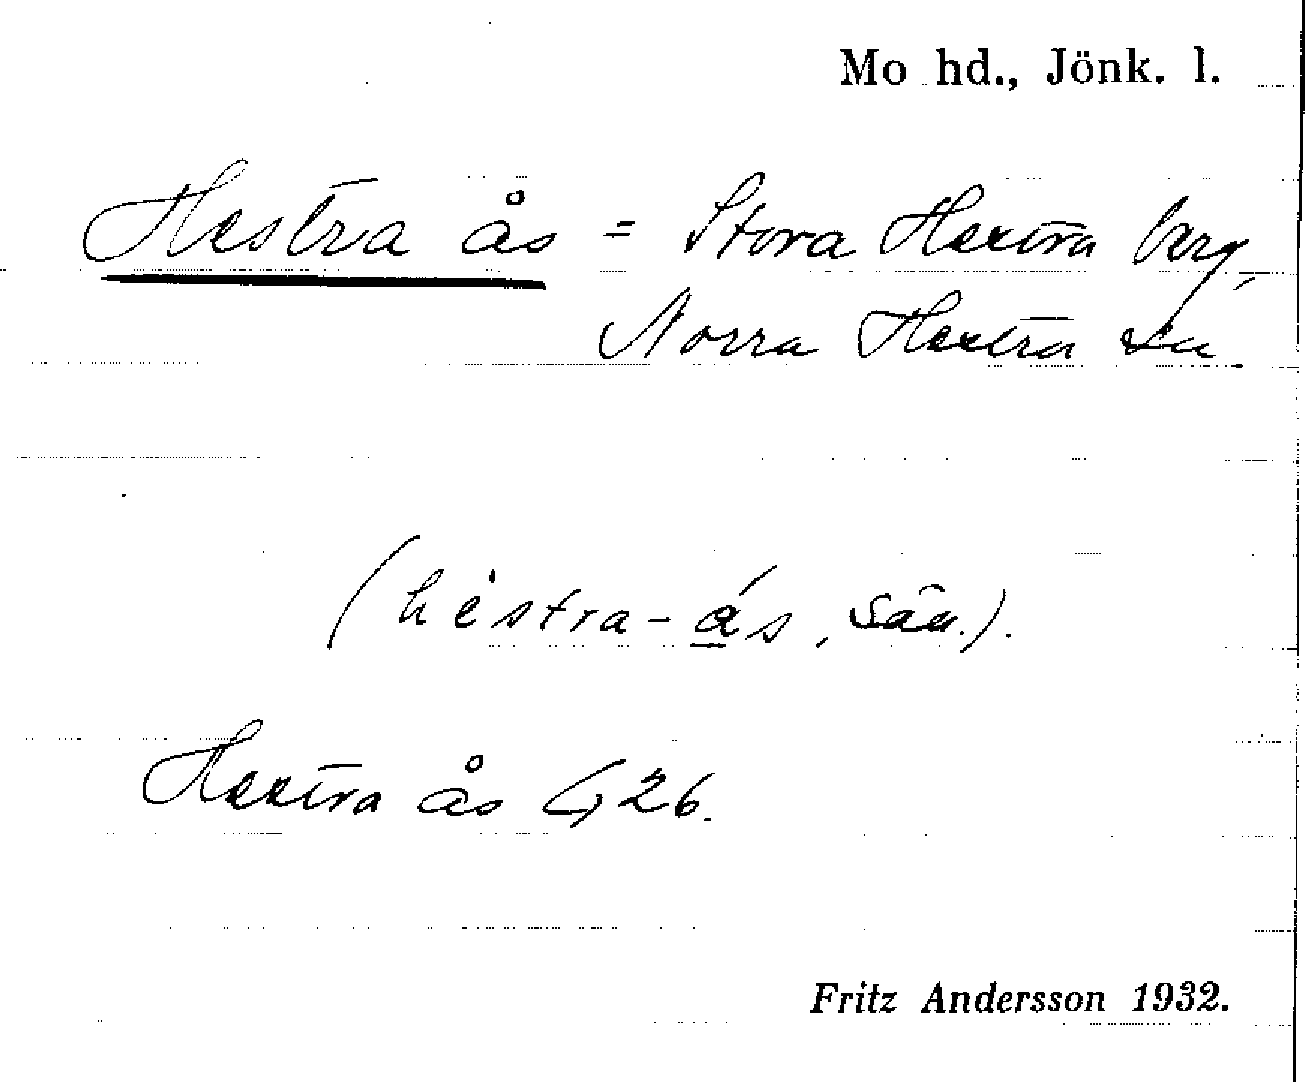 Mo hd., Jönk. l.
Hestra ås = Stora Hestra berg,
Norra Hestra sn.
(héstra-ás, sän.).
Hestra ås G, 26.
Fritz Andersson 1932.